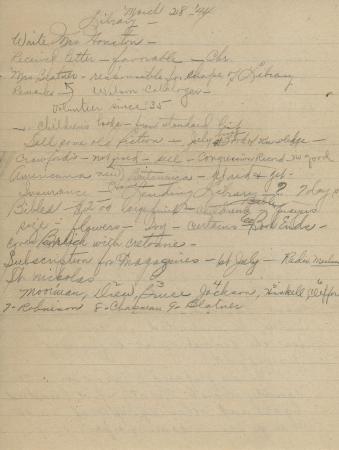 March 28 '44
Library -
Write Mrs Houston -
Receival letter - favorable - Chr.
Mrs Blatner - responsible for shape of Library
Remarks - Wilson Cataloger -
Volunteer since '35
Children's books - from standard list
Sell some old fiction - July Book of Knowledge -
Crawford's - not good - sell - Congression Record no good
Americanna new Britannica -
Insurance - Lending Library 7 days
Bibles $2.00 large print -
flowers - Ivy - curtains - Book Ends -
cover with cretonne -
Subscription for Magazines - 1st July - Radio
St. Nicholas
Moorman, Drew, Bruce Jackson, Haskell, Clifford
7- Robinson 8- Chapman 9- Blatner